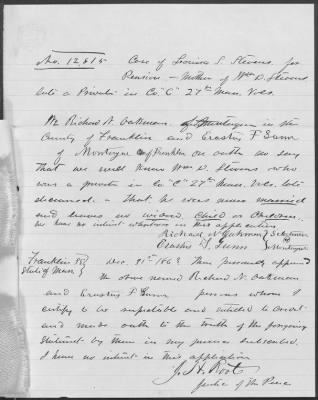 No. 12,815 Case of Louisa S. Stevens for
Pension - Mother of Wm D. Stevens
late a Private in Co. "C" 27th Mass. Vols.
We Richard N. Oakman of Montague in the
County of Franklin and Erastus F. Gunn
of Montague Franklin on oath say
that we well knew Wm D. Stevens who
was a private in Co "C" 27th Mass. Vols. late
deceased. - that he was never married
and leaves no widow, Child or Children.
We have no interest whatever in this application
Richard N. Oakman
Erastus F. Gunn Montague
Franklin SS Dec. 21st 1863 Then personally appeared
State of Mass the above named Richard N. Oakman
and Erastus F Gunn persons whom I
certify to be respectable and entitled to credit
and made oath to the truth of the foregoing
statement by them in my presence subscribed.
I have no interest in this application
J. H. Root
Justice of the Peace